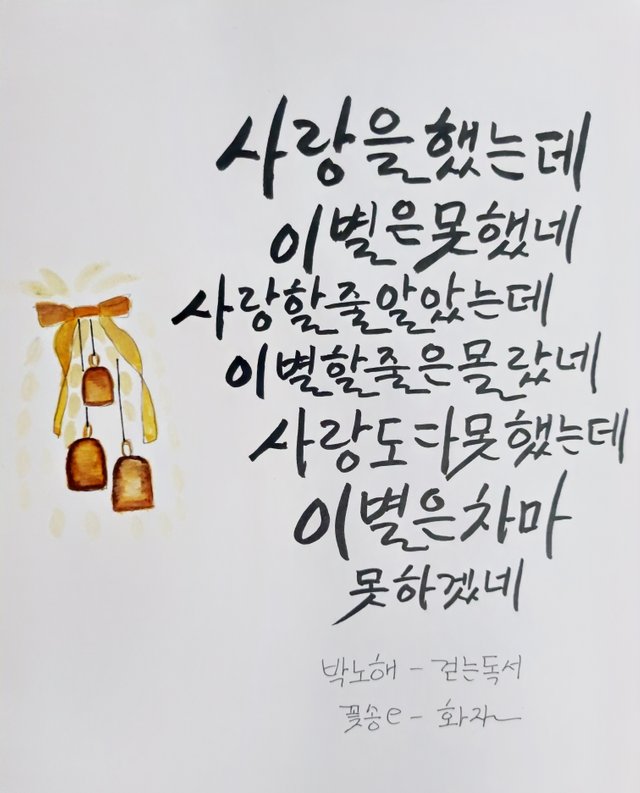 사랑을했는데
이별은못했네
사랑할줄알았는데
이별할줄은몰랐네
사랑도다못했는데
이별은차마
못하겠네
박노해 - 걷는독서
꽃송e - 화자